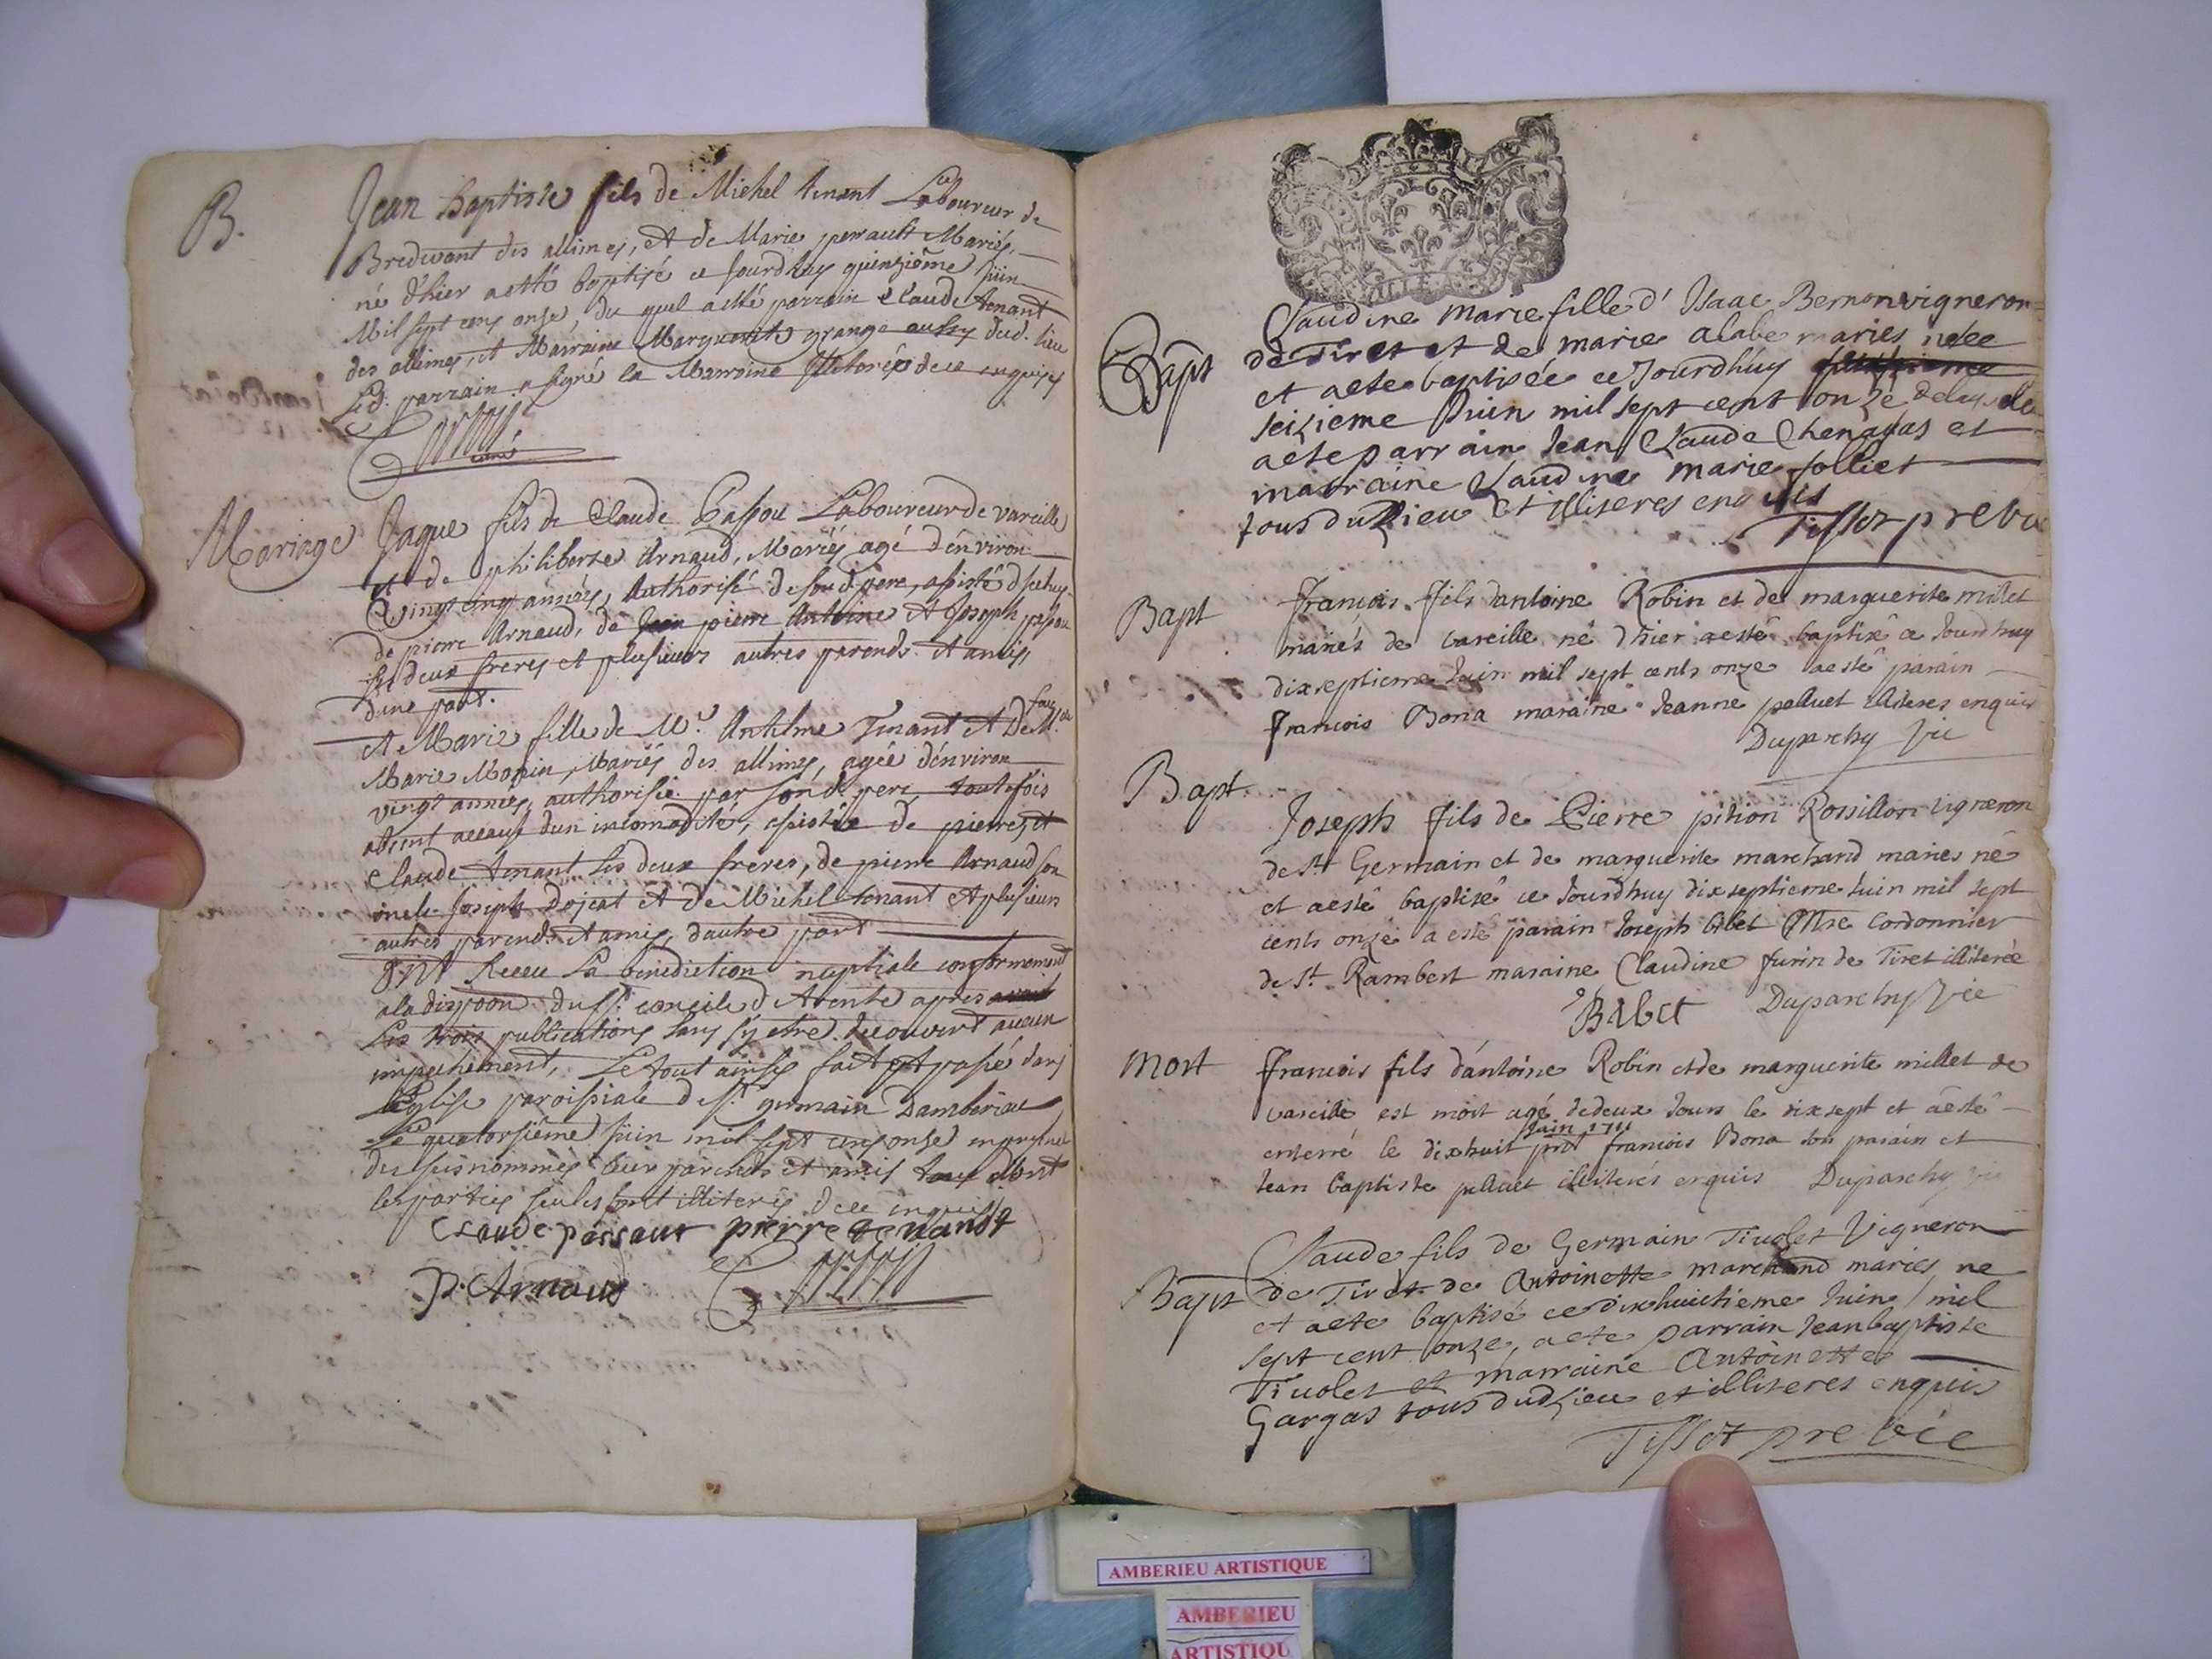 B.
Jean Baptiste fils de Michel tenant Laboureur de
Bredevent des allimes, et de Marie perrault Mariés,
né d'hier a esté baptisé ce jourdhuy quinzième juin
Mil sept cens onse, du quel a esté parrain Claude tenant
des allimes, et Marraine Marguerite grange aussy dud. lieu
Led. parrain a signé la Marraine illiterée de ce enquise
curé
Mariage
Jaque fils de Claude Passou Laboureur de vareille
et de philiberte Arnaud, Mariés agé d'environ
vingt cinq années, Authorisé de sond. pere, assisté d'iceluy
de pierre Arnaud, de pierre Antoine et Joseph passou
ses deux freres et plusieurs autres parends et amis,
dune part.
et Marie fille de Mr. Anthelme Tenant et de feue M.
Marie Monin, Mariés des allimes, agée d'environ
vingt années, authorisée par sond. pere, toutefois
absent acause dun incomodité, assistée de pierre, et
Claude tenant ses deux freres, de pierre Arnaud son
oncle Joseph Dojeat et de Michel tenant et plusieurs
autres parends et amis, dautre part
ont Receu la benediction nuptiale conformement
ala dispoon. du St. concile de trente apres
les trois publications sans s'y etre decouvert aucun
empechement, Le tout ainsy fait et passé dans
L'église paroissiale de St. germain Dambérieu
Le quatorsième juin mil sept cens onse en presence
des susnommés leur parends et amis dont
les parties seules sont illiterés de ce enquis
Claude passout pierre tenandt
P. Arnaud
Bapt
Claudine Marie fille d' Isaac Bernon vigneron
de Tiret et de marie alabe maries nee
et a ete baptisée ce Jourdhuy
seizieme Juin mil sept cent onze
a ete parrain Jean Claude Chenavas et
marraine Claudine Marie Jolliet
tous du lieu et illiteres enquis
Tissot pre vic
Bapt
françois fils dantoine Robin et de marguerite millet
mariés de vareille né dhier a esté baptizé ce Jourdhuy
dixseptieme Juin mil sept cents onze a esté parain
francois Bona maraine Jeanne palluet illiteres enquis
Duparchy Vic
Bapt.
Joseph fils de Pierre pition Rossillon vigneron
de St. Germain et de marguerite marchand maries né
et a esté baptizé ce Jourdhuy dixseptieme Juin mil sept
cents onze a esté parain Joseph Bibet Mre Cordonnier
de St. Rambert maraine Claudine furin de Tiret illiterée
Bibet Duparchy Vic
mort
francois fils d'antoine Robin et de marguerite millet de
vareille est mort agé de deux Jours le dix sept et a esté
Juin 1711
enterré le dixhuit prnt francois Bona son parain et
Jean baptiste palluet illiterés enquis Duparchy vic
Bapt
Claude fils de Germain Tivolet Vigneron
de Tiret de Antoinette marchand maries ne
et a ete baptisé ce dixhuictieme Juin mil
sept cent onze, a ete parrain Jean baptiste
Tivolet et marraine Antoinette
Gargas tous dud lieu et illiteres enquis
Tissot pre vic
AMBERIEU ARTISTIQUE
AMBERIEU
ARTISTIQU